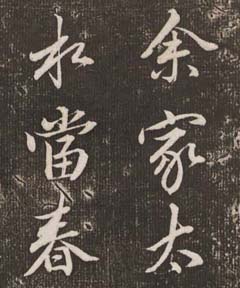 余家太
當春